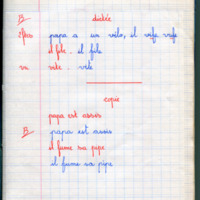 B. dictée
papa a un vélo, il
il file - il file
va vite - vite
copie
papa est assis
B. papa est assis
il fume sa pipe
il fume sa pipe